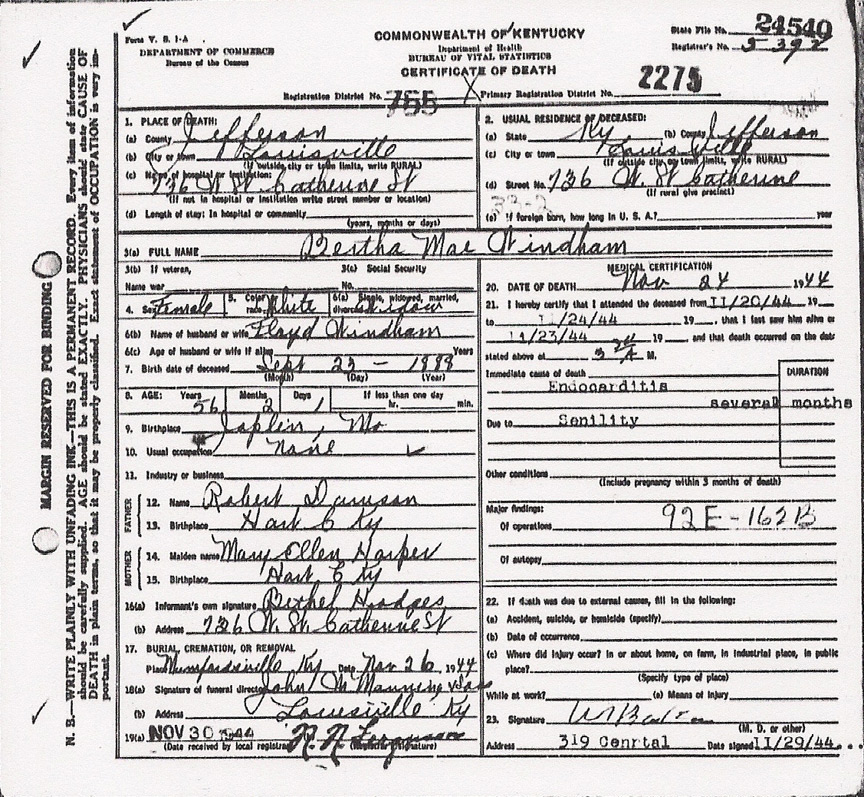 Form V. S. 1-A
DEPARTMENT OF COMMERCE
Bureau of the Census
COMMONWEALTH OF KENTUCKY
Department of Health
BUREAU OF VITAL STATISTICS
CERTIFICATE OF DEATH
State File No. 24540
Registrar's No. 5392
Registration District No. 765
Primary Registration District No. 2275
MARGIN RESERVED FOR BINDING
N. B.—WRITE PLAINLY WITH UNFADING INK—THIS IS A PERMANENT RECORD. Every item of information
should be carefully supplied. AGE should be stated EXACTLY. PHYSICIANS should state CAUSE OF
DEATH in plain terms, so that it may be properly classified. Exact statement of OCCUPATION is very im-
portant.
1. PLACE OF DEATH:
(a) County Jefferson
(b) City or town Louisville
(If outside city or town limits, write RURAL)
(c) Name of hospital or institution:
736 W St Catherine St
(If not in hospital or institution write street number or location)
(d) Length of stay: In hospital or community
(years, months or days)
2. USUAL RESIDENCE OF DECEASED:
(a) State Ky (b) County Jefferson
(c) City or town Louisville
(If outside city or town limits, write RURAL)
(d) Street No. 736 W. St Catherine
(If rural give precinct)
33-2
(e) If foreign born, how long in U. S. A.? year
3(a) FULL NAME Bertha Mae Windham
3(b) If veteran, 3(c) Social Security
Name war No.
4. Sex Female 5. Color race White 6(a) Single, widowed, married, divorced Widow
6(b) Name of husband or wife Floyd Windham
6(c) Age of husband or wife if alive Years
7. Birth date of deceased Sept 23 - 1888
(Month) (Day) (Year)
8. AGE: Years 56 Months 2 Days 1 If less than one day hr. min.
9. Birthplace Joplin, Mo
10. Usual occupation None
11. Industry or business
FATHER
12. Name Robert Dawson
13. Birthplace Hart C Ky
MOTHER
14. Maiden name Mary Ellen Harper
15. Birthplace Hart C Ky
16(a) Informant's own signature Bethel Hodges
(b) Address 736 W. St. Catherine St
17. BURIAL, CREMATION, OR REMOVAL
Place Munfordsville Ky Date Nov 26, 1944
18(a) Signature of funeral director John M Manning & Son
(b) Address Louisville Ky
19(a) NOV 30 1944
(Date received by local registrar) (Registrar's signature)
MEDICAL CERTIFICATION
20. DATE OF DEATH Nov 24 1944
21. I hereby certify that I attended the deceased from 11/20/44 19
to 11/24/44 19, that I last saw him alive on
11/23/44 19 and that death occurred on the date
stated above at 3 A M.
Immediate cause of death DURATION
Endocarditis
several months
Due to Senility
Other conditions
(Include pregnancy within 3 months of death)
Major findings:
Of operations 92E-162B
Of autopsy
22. If death was due to external causes, fill in the following:
(a) Accident, suicide, or homicide (specify)
(b) Date of occurrence
(c) Where did injury occur? In or about home, on farm, in industrial place, in public
place?
(Specify type of place)
While at work? (e) Means of injury
23. Signature
(M. D. or other)
Address 319 Cenrtal Date signed 11/29/44